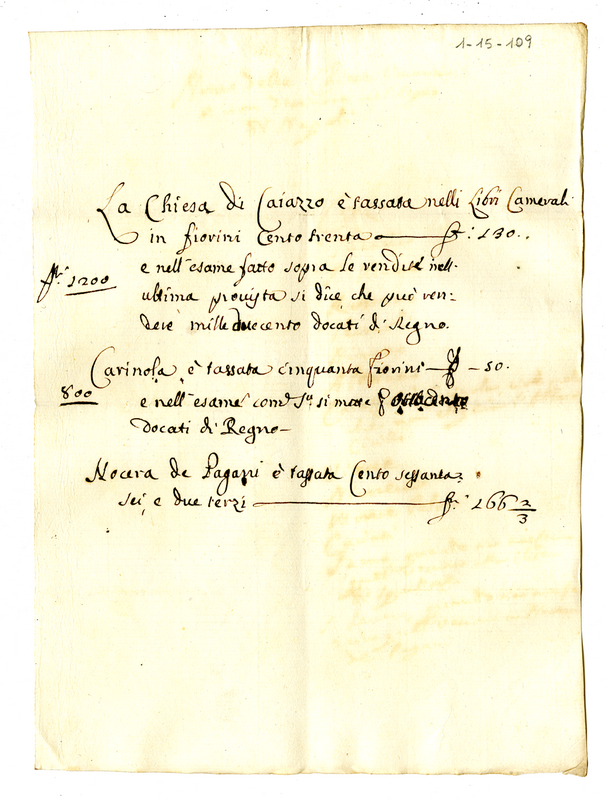 1-15-109
La Chiesa di Caiazzo è tassata nelli Libri Camerali
in fiorini Cento trenta — f: 130.
e nell'esame fatto sopra le rendite nell'
1200
ultima provista si dice che può ren-
dere mille ducento docati di Regno.
Carinola è tassata cinquanta fiorini — f — 50.
800
e nell'esame com.e s.a si mette ottocento
docati di Regno —
Nocera de Pagani è tassata Cento sessanta
sei, e due terzi — f: 166 2/3